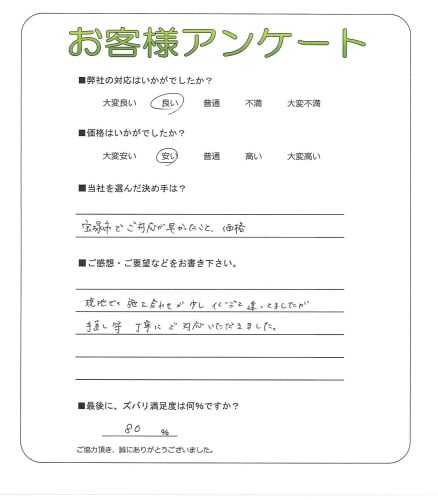 お客様アンケート
■弊社の対応はいかがでしたか?
大変良い 良い 普通 不満 大変不満
■価格はいかがでしたか?
大変安い 安い 普通 高い 大変高い
■当社を選んだ決め手は?
宝塚市でご対応が早かったこと、価格
■ご感想・ご要望などをお書き下さい。
現地で 組み合わせが少しイメージと違ってましたが
手直し等 丁寧にご対応いただきました。
■最後に、ズバリ満足度は何%ですか?
80 %
ご協力頂き、誠にありがとうございました。